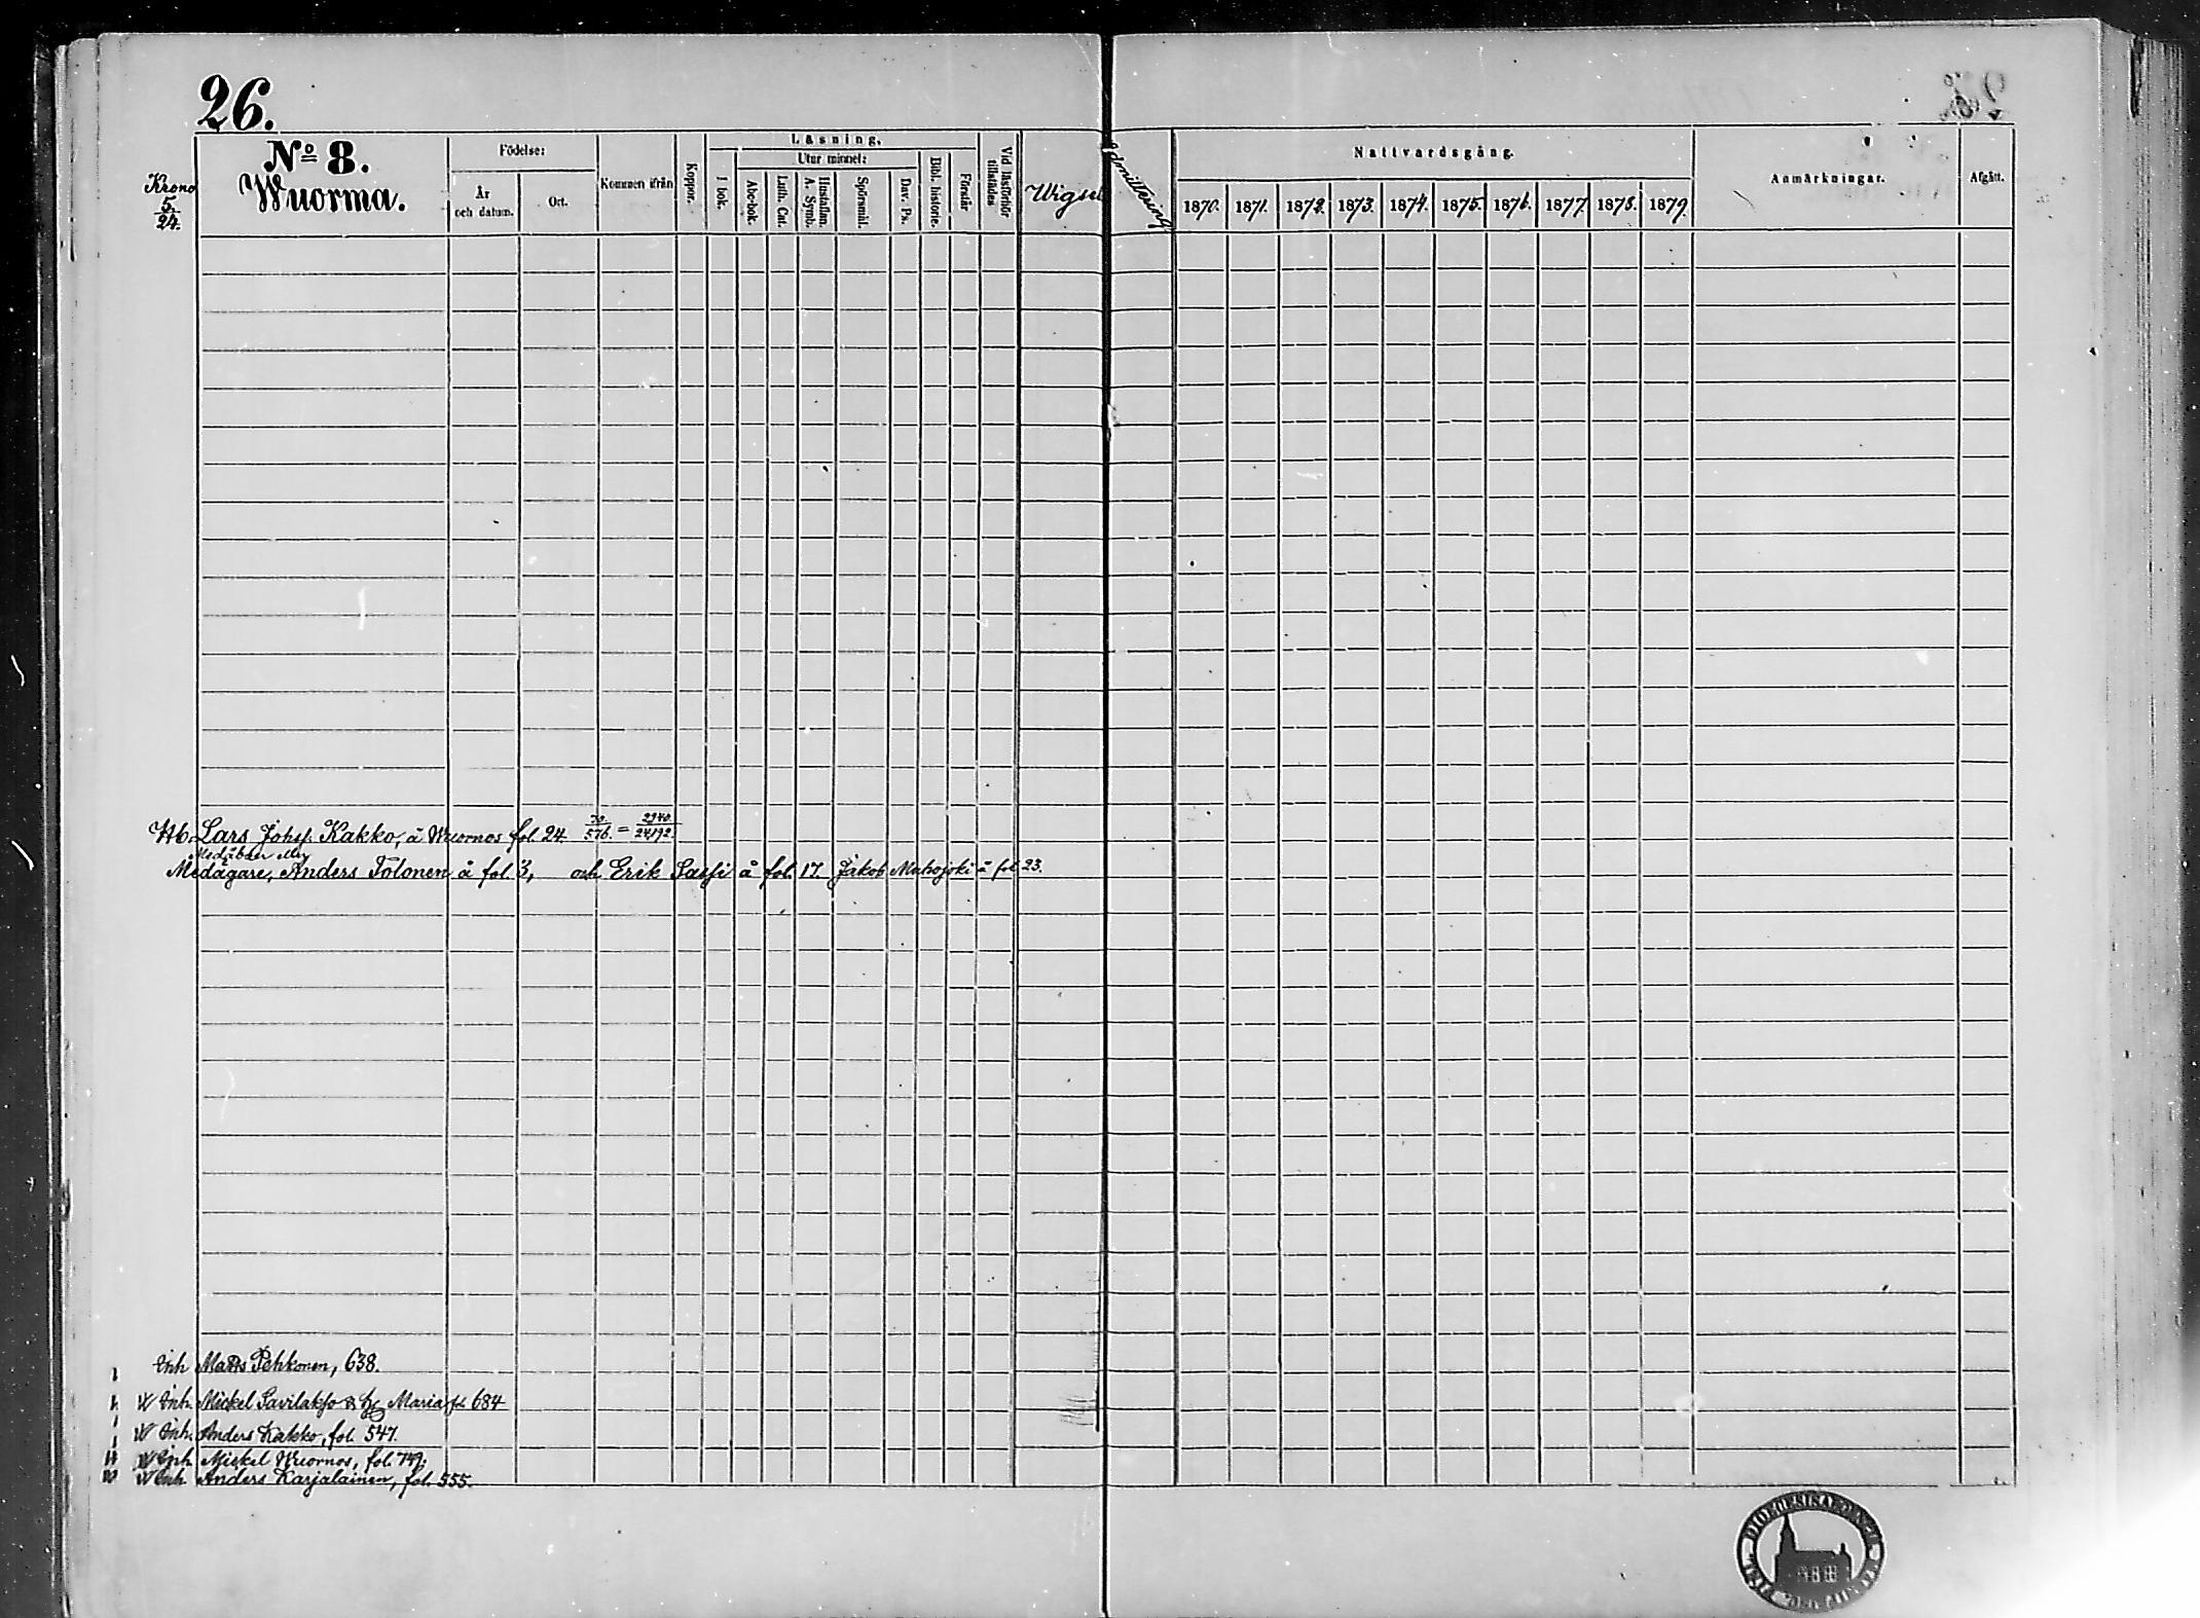 26.
Krono
5.
24.
No 8.
Wuorma.
Födelse:
År
och datum.
Ort.
Kommen ifrån
Koppor.
Läsning.
I bok.
Utur minnet:
Abc-bok.
Luth. Cat.
Hustaflan.
A. Symb.
Spörsmål.
Dav. Ps.
Bibl. historie.
Förstår
Vid läsförhör
tillstädes
Wigsel
Admittering
Nattvardsgång.
1870. 1871. 1872. 1873. 1874. 1875. 1876. 1877. 1878. 1879.
Anmärkningar.
Afgått.
Lars Johss. Kakko, å Wuornos fol. 24. 70/576. = 2940/24192.
Medåboer
Medägare, Anders Tolonen å fol. 3, och Erik Sarfi å fol. 17. Jakob Muhojoki å fol 23.
Inh Matts Pehkonen, 638.
W Inh. Mickel Savilakso & Maria fol 684
W Inh. Anders Kakko, fol. 547.
W Inh Mickel Wuornos, fol. 749.
W Inh Anders Karjalainen, fol. 555.